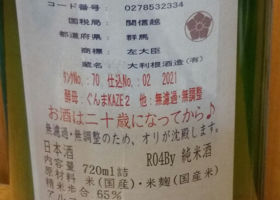 コード番号 0278532334
国税局: 関信越
都道府県: 群馬
商標: 左大臣
蔵名: 大利根酒造(有)
タンクNo.:70 仕込No.:02 2021
酵母:ぐんまKAZE2 他:無濾過・無調整
お酒は二十歳になってから♪
無濾過・無調整のため、オリが沈殿します。
日本酒 R04By 純米酒
内容量 720ml詰
原材料 米(国産)・米麹(国産米)
精米歩合 65%
アルコ